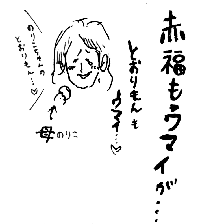 赤福もウマイが・・・
とおりもんも
ウマイ・・・♡
のりこちゃんの
とおりもん・・・♡
母のりこ